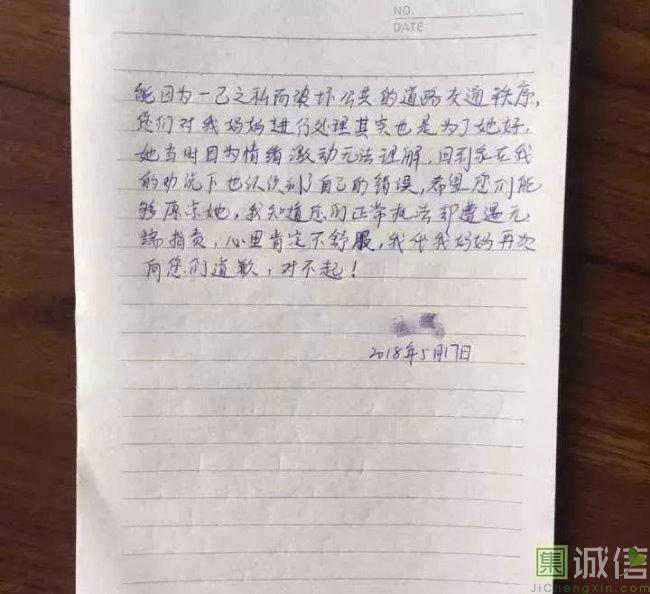 NO.
DATE
能因为一己之私而破坏公共的道路交通秩序,
您们对我妈妈进行处理其实也是为了她好,
她当时因为情绪激动无法理解,回到家在我
的劝说下也认识到了自己的错误,希望您们能
够原谅她,我知道您们正常执法却遭遇无
端指责,心里肯定不舒服,我代我妈妈再次
向您们道歉,对不起!
2018年5月17日
集 诚信
JiChengXin.com